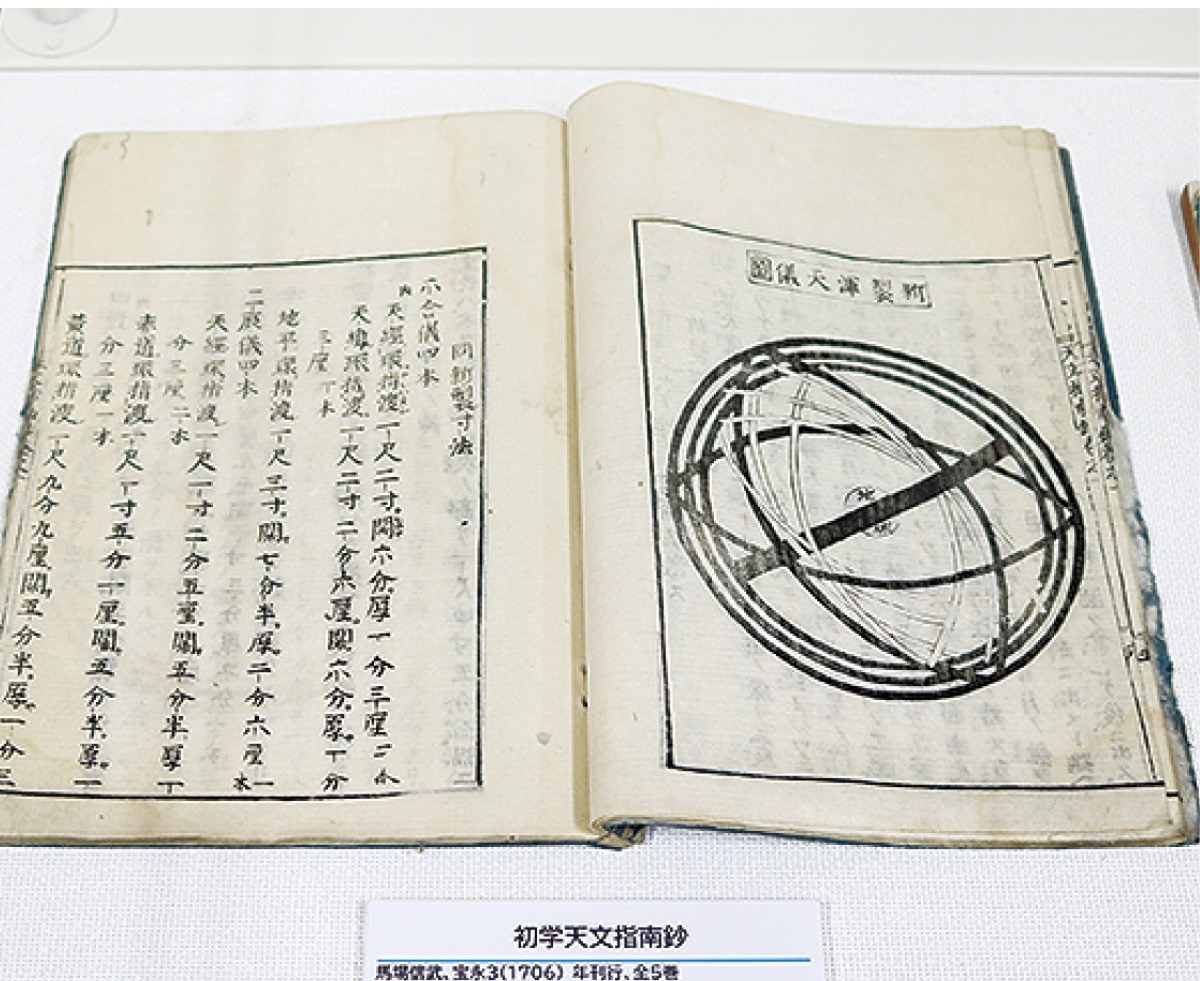 新製渾天儀圖
同新製寸法
六合儀四本
内天經環指渡一尺二寸闊六分厚一分三厘二本
天緯環指渡一尺二寸二分六厘闊六分厚一分
三厘一本
地平環指渡一尺三寸闊七分半厚二分六厘一本
二辰儀四本
天經環指渡一尺一寸二分五厘闊五分半厚一
分三厘二本
赤道環指渡一尺一寸五分一厘闊五分半厚一
分三厘一本
黄道環指渡一尺九分九厘闊五分半厚一分三
初学天文指南鈔
馬場信武、宝永3(1706) 年刊行、全5巻